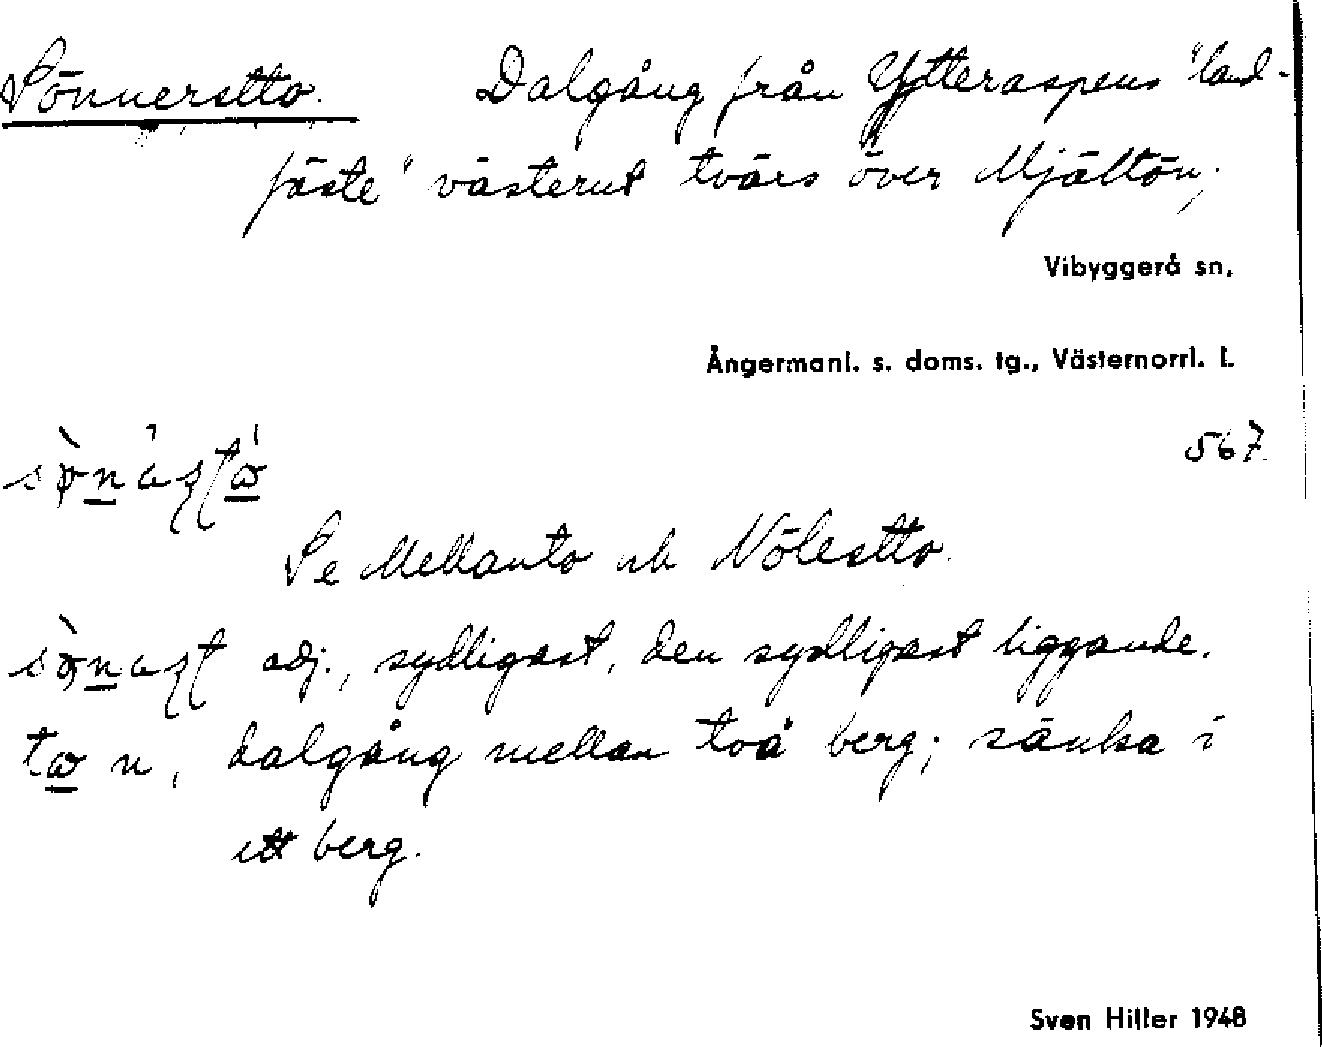 Sönnerstto. Dalgång från Ytteraspens "land-
fäste" västerut tvärs över Mjältön;
Vibyggerå sn.
Ångermanl. s. doms. tg., Västernorrl. l.
567.
Se Mellanto och Nölestto.
adj., sydligast, den sydligast liggande.
n, dalgång mellan två berg; sänka i
ett berg.
Sven Hiller 1948